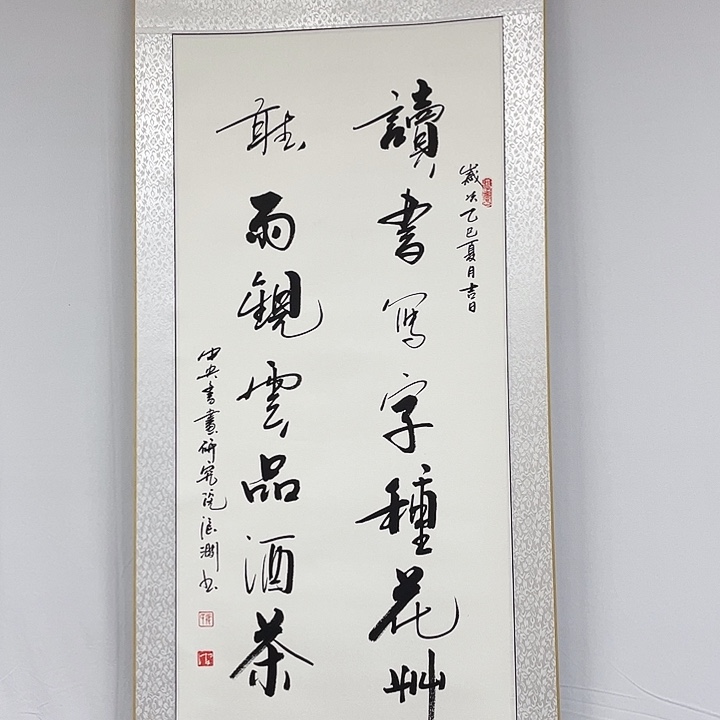 歲次乙巳夏月吉日
讀書寫字種花艸
聽雨觀雲品酒茶
中央書畫研究院 书